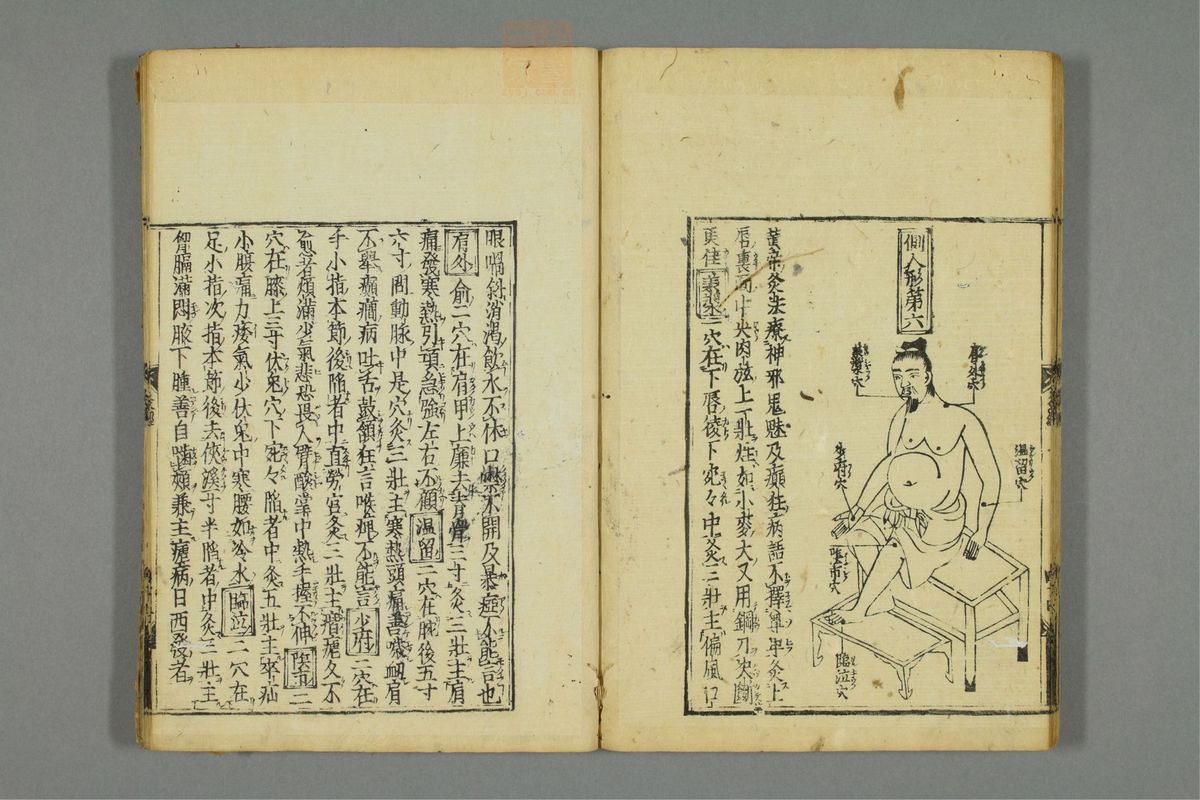 側人形第六
肩外穴
承漿穴
温留穴
少府穴
陰市穴
臨泣穴
黄帝灸法療神邪鬼魅及癲狂病語不擇尊卑灸上
唇裏面中央肉弦上一壯炷如小麥大又用鋼刀決斷
更佳承漿一穴在下唇稜下宛々中灸三壯主偏風口
眼喎斜消渇飲水不休口噤不開及暴瘂不能言也
肩外俞二穴在肩甲上廉去脊骨三寸灸三壯主肩
痛發寒熱引項急強左右不顧温留二穴在腕後五寸
六寸間動脉中是穴灸三壯主寒熱頭痛善噦衂肩
不擧癲癇病吐舌鼓頷狂言喉痺不能言少府二穴在
手小指本節後陷者中直勞宮灸三壯主瘧久不
愈者煩滿少氣悲恐畏人臂酸掌中熱手握不伸陰市二
穴在膝上三寸伏兎穴下宛々陷者中灸五壯主卒疝
小腹痛力痿氣少伏兎中寒腰如冷水臨泣二穴在
足小指次指本節後去俠溪寸半陷者中灸三壯主
胷膈滿悶腋下腫善自嚙頰兼主瘧病日西發者